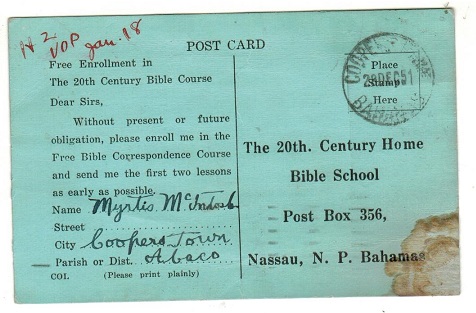 N 2
VOP Jan. 18
POST CARD
Free Enrollment in
The 20th Century Bible Course
Dear Sirs,
Without present or future
obligation, please enroll me in the
Free Bible Correspondence Course
and send me the first two lessons
as early as possible.
Name Myrtis McIntosh
Street
City Coopers Town
Parish or Dist. Abaco
CO1. (Please print plainly)
Place
Stamp
Here
28 DEC 51
The 20th. Century Home
Bible School
Post Box 356,
Nassau, N. P. Bahamas